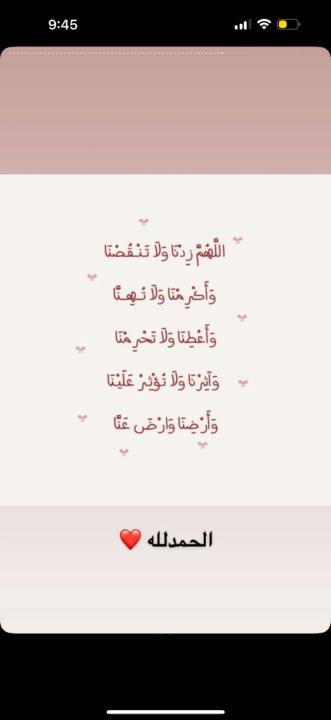 9:45
اللَّهُمَّ زِدْنَا وَلَا تَنْقُصْنَا
وَأَكْرِمْنَا وَلَا تُهِنَّا
وَأَعْطِنَا وَلَا تَحْرِمْنَا
وَآثِرْنَا وَلَا تُؤْثِرْ عَلَيْنَا
وَأَرْضِنَا وَارْضَ عَنَّا
الحمدلله ❤️